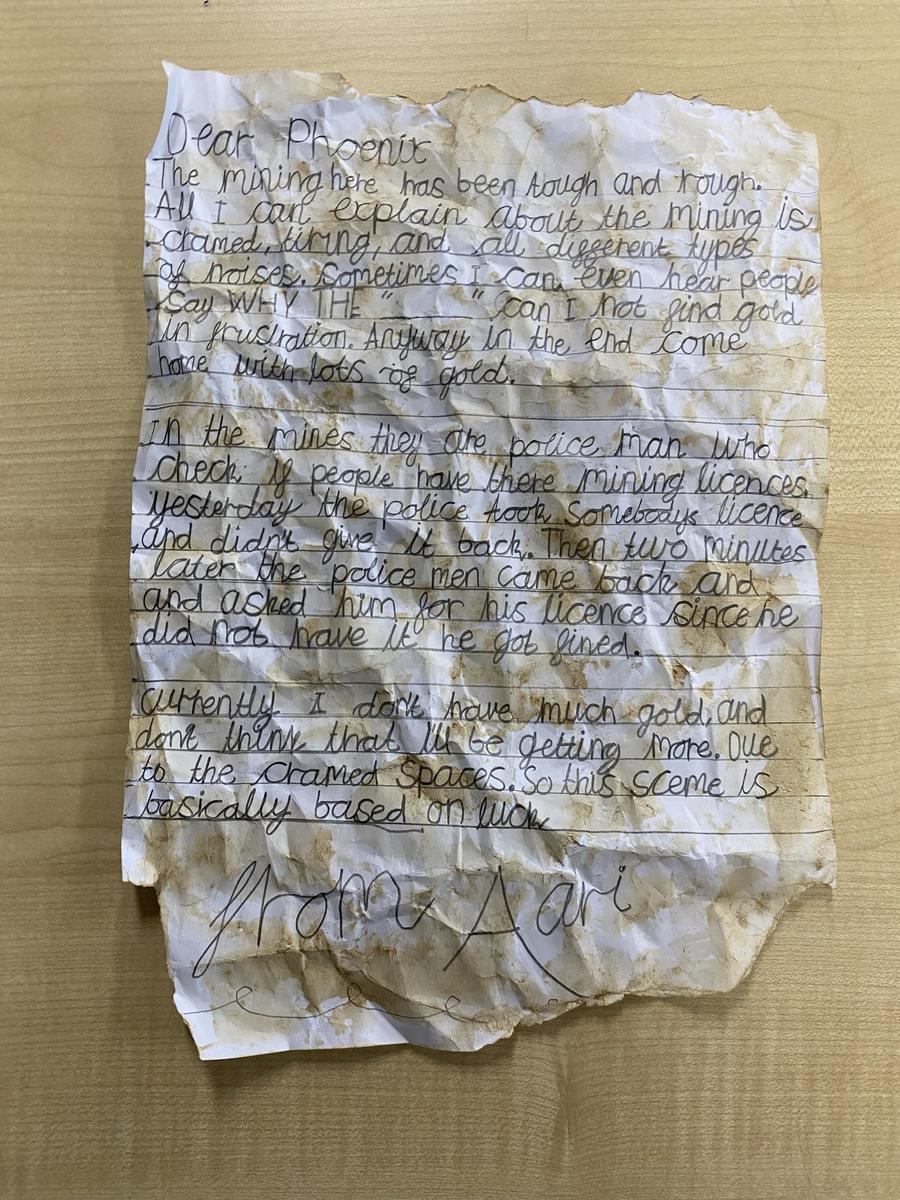 Dear Phoenix
The mining here has been tough and rough.
All I can explain about the mining is
cramed, tiring, and all different types
of noises. Sometimes I can even hear people
say WHY THE "____" can I not find gold
in frustration. Anyway in the end come
home with lots of gold.
In the mines they are police man who
check if people have there mining licences.
yesterday the police took somebodys licence
and didn't give it back. Then two minutes
later the police men came back and
and asked him for his licence since he
did not have it he got fined.
Currently I don't have much gold, and
don't think that I'll be getting more. Due
to the cramed spaces. So this sceme is
basically based on luck
from Aari